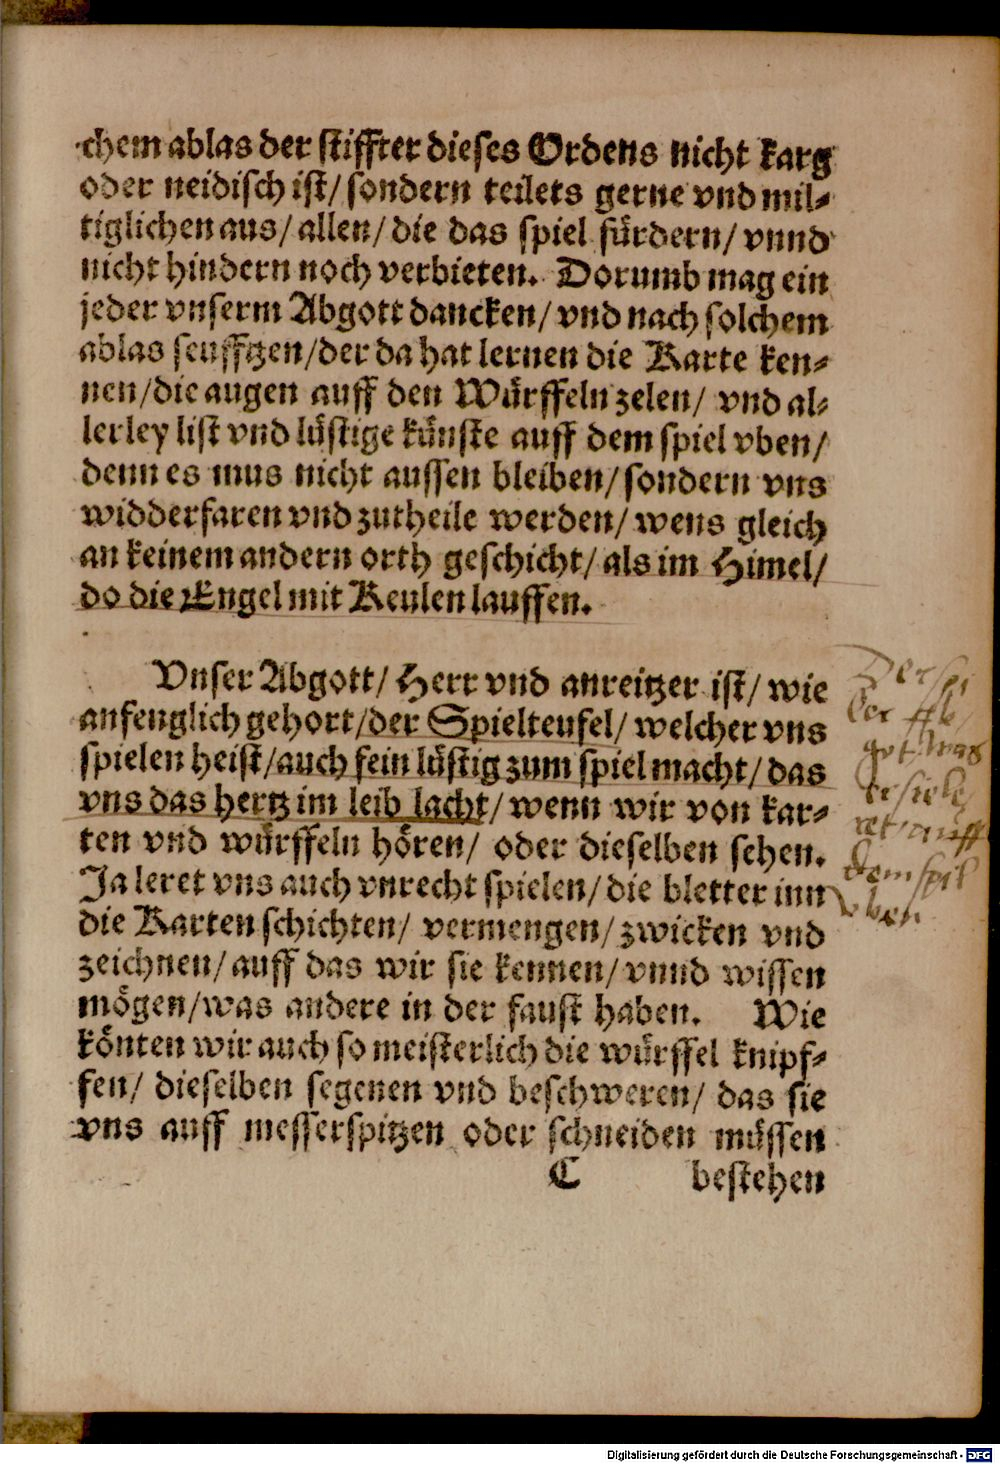 chem ablas der stiffter dieses Ordens nicht karg
oder neidisch ist/ sondern teilets gerne vnd mil⸗
tiglichen aus/ allen/ die das spiel fürdern/ vnnd
nicht hindern noch verbieten. Dorumb mag ein
jeder vnserm Abgott dancken/ vnd nach solchem
ablas seufftzen/ der da hat lernen die Karte ken⸗
nen/ die augen auff den Würffeln zelen/ vnd al⸗
lerley list vnd lüstige künste auff dem spiel vben/
denn es mus nicht aussen bleiben/ sondern vns
widderfaren vnd zutheile werden/ wens gleich
an keinem andern orth geschicht/ als im Himel/
do die Engel mit Keulen lauffen.
Vnser Abgott/ Herr vnd anreitzer ist/ wie
anfenglich gehort/ der Spielteufel/ welcher vns
spielen heist/ auch fein lüstig zum spiel macht/ das
vns das hertz im leib lacht/ wenn wir von kar⸗
ten vnd würffeln hören/ oder dieselben sehen.
Ja leret vns auch vnrecht spielen/ die bletter inn
die Karten schichten/ vermengen/ zwicken vnd
zeichnen/ auff das wir sie kennen/ vnnd wissen
mögen/ was andere in der faust haben. Wie
könten wir auch so meisterlich die würffel knipf⸗
fen/ dieselben segenen vnd beschweren/ das sie
vns auff messerspitzen oder schneiden müssen
C bestehen
Der
was
auff
dem spil
vben
Digitalisierung gefördert durch die Deutsche Forschungsgemeinschaft - DFG